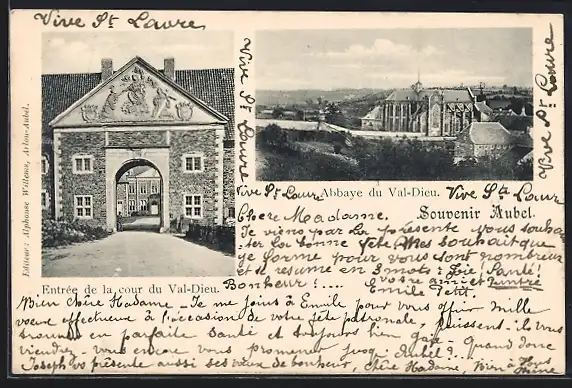 Vive St Laure
Vive St Laure
Vive St Laure
Editeur: Alphonse Willems, Arlon-Aubel.
Vive St Laure
Abbaye du Val-Dieu.
Vive Ste Laure
Souvenir Aubel.
Chère Madame.
Je viens par La présente vous souhai-
ter La bonne fête. Mes souhait que
je forme pour vous sont nombreux
et se résume en 3 mots: Joie! Santé!
Bonheur!....
Votre ami et
Emile Petit.
Entrée de la cour du Val-Dieu.
Bien Chère Madame - Je me joins à Emile pour vous offrir mille
vœux affectueux à l'occasion de votre fête patronale, puissent-ils vous
trouver en parfaite santé et toujours bien gaie - Quand donc
viendrez-vous encore vous promener jusqu'Aubel?..
Joseph vs présente aussi ses vœux de bonheur, Chère Madame, Bien à Vous